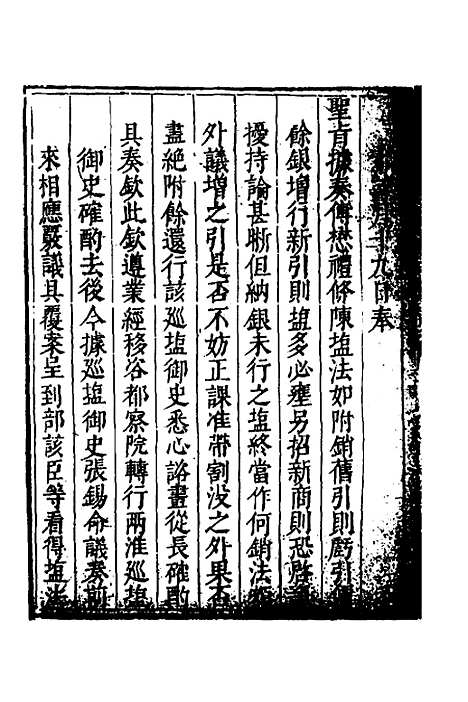 十九日奉
聖旨據奏傅懋禮條陳塩法如附銷舊引則虧引價
餘銀增行新引則塩多必壅另招新商則恐啓
擾持論甚晰但納銀未行之塩終當作何銷法
外議增之引是否不妨正課准帶割没之外果否
盡絶附餘還行該廵塩御史悉心詻畫從長確酌
具奏欽此欽遵業經移咨都察院轉行兩淮廵塩
御史確酌去後今據廵塩御史張錫命議奏前
來相應覈議具覆案呈到部該臣等看得塩法